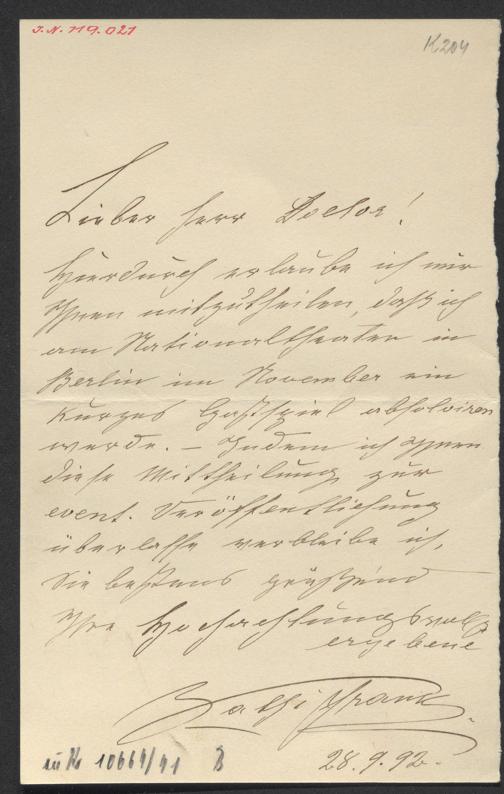 J.N. 119.021
K204
Lieber Herr Doctor!
Hierdurch erlaube ich mir
Ihnen mitzutheilen, daß ich
am Nationaltheater in
Berlin im November ein
kurzes Gastspiel absolviren
werde. – Indem ich Ihnen
diese Mittheilung zur
event. Veröffentlichung
überlasse verbleibe ich,
Sie bestens grüßend
Ihre Hochachtungsvoll
ergebene
Kathi Frank
28.9.92.
10664/91 B